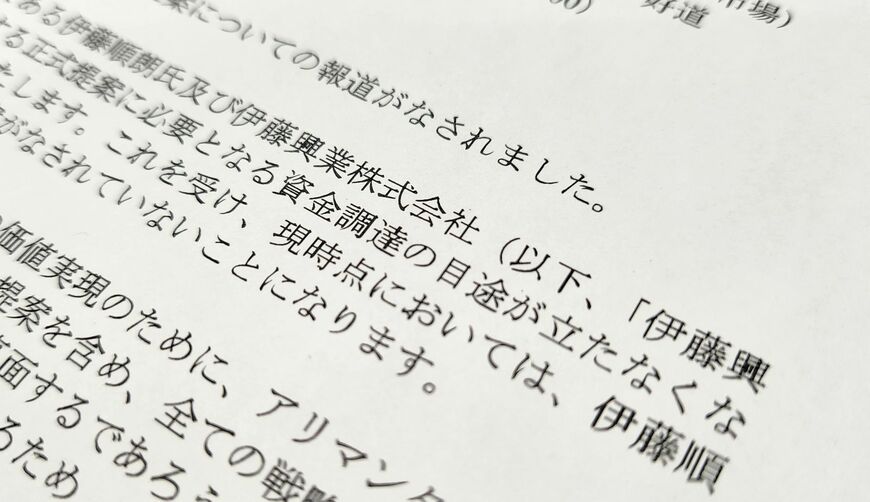 市場）
00） 好道
案についての報道がなされました。
ある伊藤順朗氏及び伊藤興業株式会社（以下、「伊藤興
する正式提案に必要となる資金調達の目途が立たなくな
たします。これを受け、現時点においては、伊藤順
がなされていないことになります。
価値実現のために、アリマンタ
提案を含め、全ての戦略
直面するであろう
るため